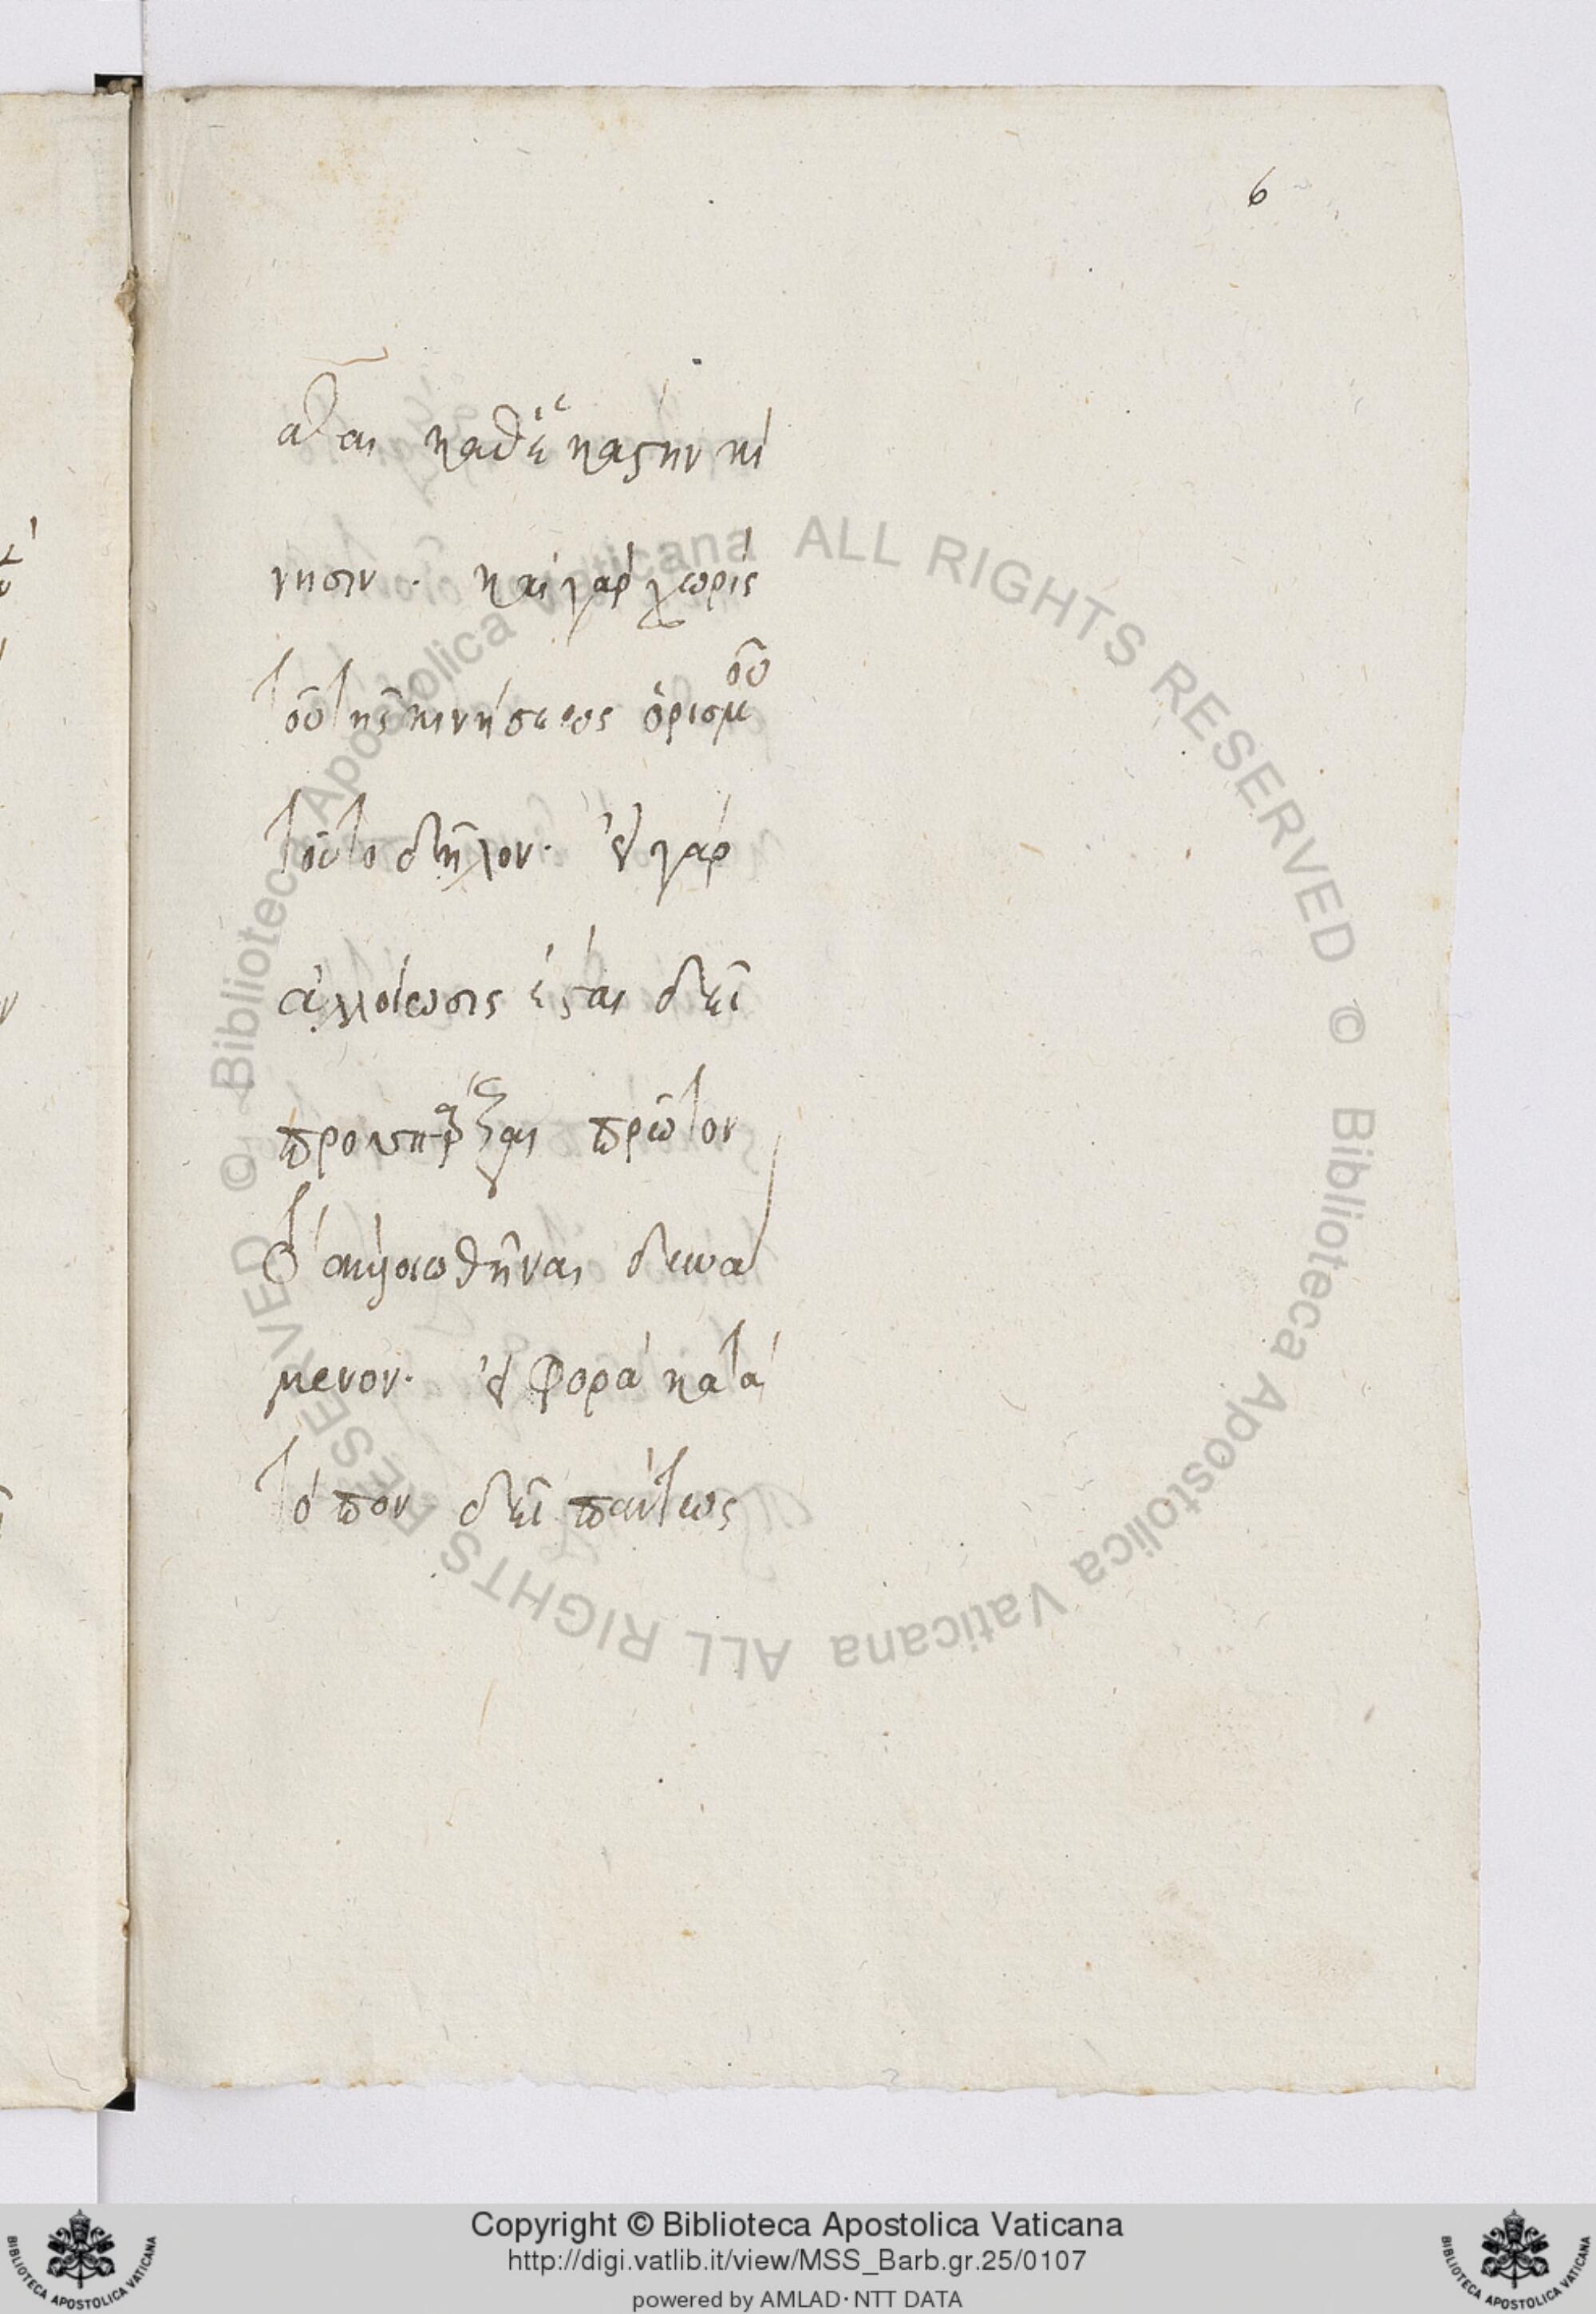 6
αται καθ ἑκάστην κί
νησιν. καὶ γὰρ χωρὶς
τοῦ τῆς κινήσεως ὁρισμοῦ
τοῦτο δῆλον. εἰ γὰρ
ἀλλοίωσις ἔσται δεῖ
προυπάρξαι πρῶτον
τὸ ἀλλοιωθῆναι δυνά
μενον. εἰ φορὰ κατὰ
τόπον δεῖ πάντως
© Biblioteca Apostolica Vaticana ALL RIGHTS RESERVED © Biblioteca Apostolica Vaticana ALL RIGHTS RESERVED
Copyright © Biblioteca Apostolica Vaticana
http://digi.vatlib.it/view/MSS_Barb.gr.25/0107
powered by AMLAD·NTT DATA
BIBLIOTECA APOSTOLICA VATICANA
BIBLIOTECA APOSTOLICA VATICANA